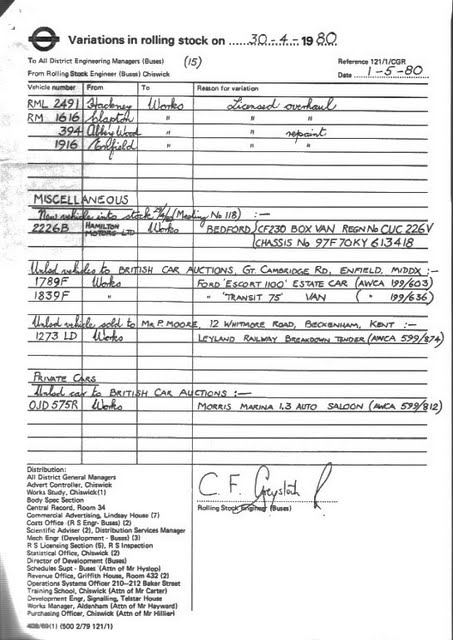 Variations in rolling stock on 30-4-1980
To All District Engineering Managers (Buses) (15) Reference 121/1/CGR
From Rolling Stock Engineer (Buses) Chiswick Date 1-5-80
Vehicle number From To Reason for variation
RML 2491 Hackney Works Licensed overhaul
RM 1616 Clapton " " "
394 Abbey Wood " " repaint
1916 Enfield " " "
MISCELLANEOUS
New vehicle into stock 29/4/80 (Meeting No 118) :-
2226B HAMILTON MOTORS LTD Works BEDFORD CF230 BOX VAN REGN No CUC 226V
CHASSIS No 97F70KY 613418
Unlsd vehicles to BRITISH CAR AUCTIONS, GT. CAMBRIDGE RD, ENFIELD, MIDDX :-
1789F Works FORD 'ESCORT 1100' ESTATE CAR (AWCA 199/603)
1839F " " 'TRANSIT 75' VAN ( " 199/636)
Unlsd vehicle sold to MR P. MOORE, 12 WHITMORE ROAD, BECKENHAM, KENT :-
1273 LD Works LEYLAND RAILWAY BREAKDOWN TENDER (AWCA 599/874)
PRIVATE CARS
Unlsd car to BRITISH CAR AUCTIONS :-
OJD 575R Works MORRIS MARINA 1.3 AUTO SALOON (AWCA 599/812)
Distribution:
All District General Managers
Advert Controller, Chiswick
Works Study, Chiswick(1)
Body Spec Section
Central Record, Room 34
Commercial Advertising, Lindsay House (7)
Costs Office (R S Engr- Buses) (2)
Scientific Adviser (2), Distribution Services Manager
Mech Engr (Development - Buses) (3)
R S Licensing Section (5), R S Inspection
Statistical Office, Chiswick (2)
Director of Development (Buses)
Schedules Supt - Buses (Attn of Mr Hyslop)
Revenue Office, Griffith House, Room 432 (2)
Operations Systems Officer 210-212 Baker Street
Training School, Chiswick (Attn of Mr Carter)
Development Engr, Signalling, Telstar House
Works Manager, Aldenham (Attn of Mr Hayward)
Purchasing Officer, Chiswick (Attn of Mr Hillier)
C. F.
Rolling Stock Engineer (Buses)
(500 2/79 121/1)